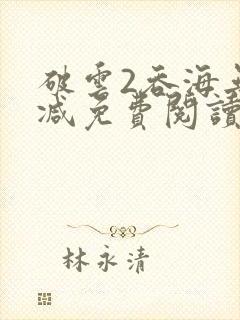 破雲2吞海無
減免費閱讀
林永清